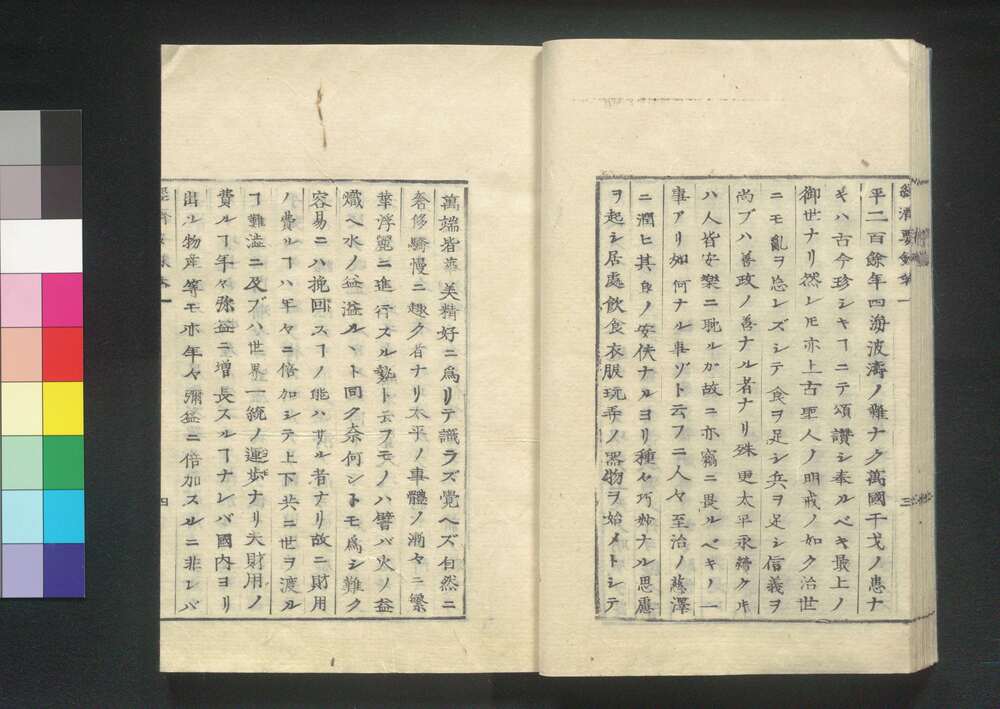 平二百餘年四海波濤ノ難ナク萬國干戈ノ患ナ
キハ古今珍シキヿニテ頌讚シ奉ルベキ最上ノ
御世ナリ然レ𪜈亦上古聖人ノ明戒ノ如ク治世
ニモ亂ヲ忘レズシテ食ヲ足シ兵ヲ足シ信義ヲ
尚ブハ善政ノ善ナル者ナリ殊更太平永續クキ
ハ人皆安樂ニ耽ルガ故ニ亦竊ニ畏ルベキノ一
事アリ如何ナル事ゾト云フニ人々至治ノ慈澤
ニ潤ヒ其身ノ安佚ナルヨリ種々巧妙ナル思慮
ヲ起シ居處飲食衣服玩弄ノ器物ヲ始メトシテ
萬端皆華美精好ニ爲リテ識ラズ覺ヘズ自然ニ
奢侈驕慢ニ趣ク者ナリ太平ノ事體ノ漸々ニ繁
華浮靡ニ進行スル勢ト云フモノハ譬バ火ノ益
熾ヘ水ノ益溢ルヽト同ク奈何シトモ爲シ難ク
容易ニハ挽回スヿノ能ハザル者ナリ故ニ財用
ノ費ルヿハ年々ニ倍加シテ上下共ニ世ヲ渡ル
ヿ難澁ニ及ブハ世界一統ノ運歩ナリ夫財用ノ
費ルヿ年々弥益ニ増長スルヿナレバ國内ヨリ
出ル物産等モ亦年々彌益ニ倍加スルニ非レバ
四